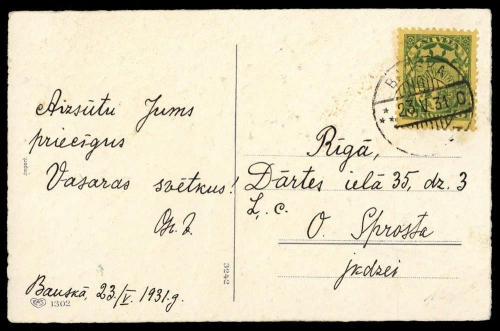 Aizsūtu Jums
priecīgus
Vasaras svētkus!
Bauskā, 23/V. 1931.g.
Rīgā,
Dārtes ielā 35, dz. 3
L. c.
O. Sprosta
jkdzei
LATVIJA
23.V.31
Import.
3242
1302